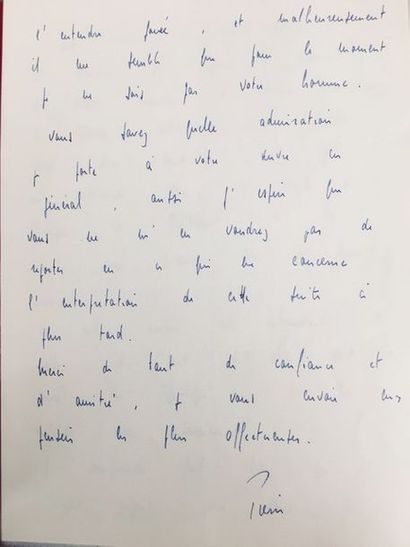 l'entendre jouée, et malheureusement
il me semble que pour le moment
je ne suis pas votre homme.
vous savez quelle admiration
je porte à votre œuvre en
général, aussi j'espère que
vous ne m'en voudrez pas de
reporter en ce qui me concerne
l'interprétation de cette suite à
plus tard.
Merci de tant de confiance et
d'amitié, je vous envoie mes
pensées les plus affectueuses.